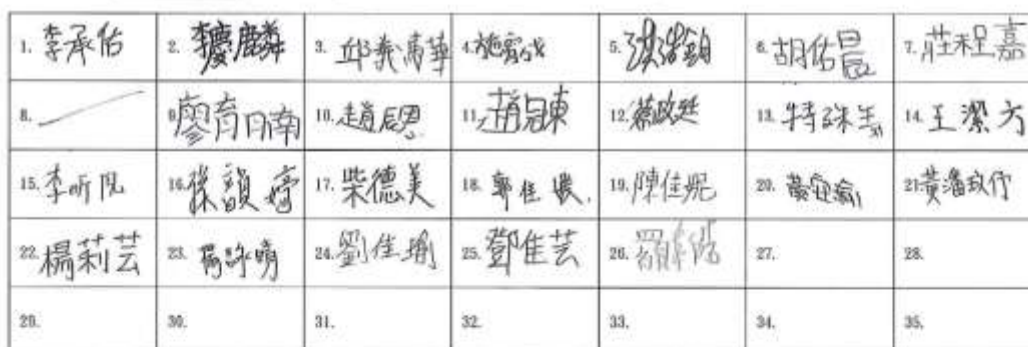 1. 李承佑 2. 李慶麟 3. 邱義萬華 4. 施 5. 洪 6. 胡佑晨 7. 莊程嘉
8. 9. 廖育楠 10. 趙辰恩 11. 趙冠東 12. 蔡政廷 13. 特殊生 14. 王潔方
15. 李昕 16. 孫韻婷 17. 柴德美 18. 郭佳 19. 陳佳妮 20. 21. 黃潘
22. 楊莉芸 23. 楊詠晴 24. 劉佳瑜 25. 鄧隹芸 26. 羅 27. 28.
29. 30. 31. 32. 33. 34. 35.